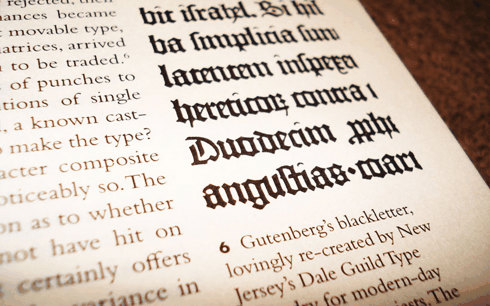 nances became
movable type,
matrices, arrived
to be traded.⁶
of punches to
tions of single
, a known cast-
make the type?
racter composite
oticeably so. The
on as to whether
not have hit on
certainly offers
variance in
ba simplicia sunt
latentem
contra
Duodecim
angustias·
6 Gutenberg's blackletter,
lovingly re-created by New
Jersey's Dale Guild Type
for modern-day
The